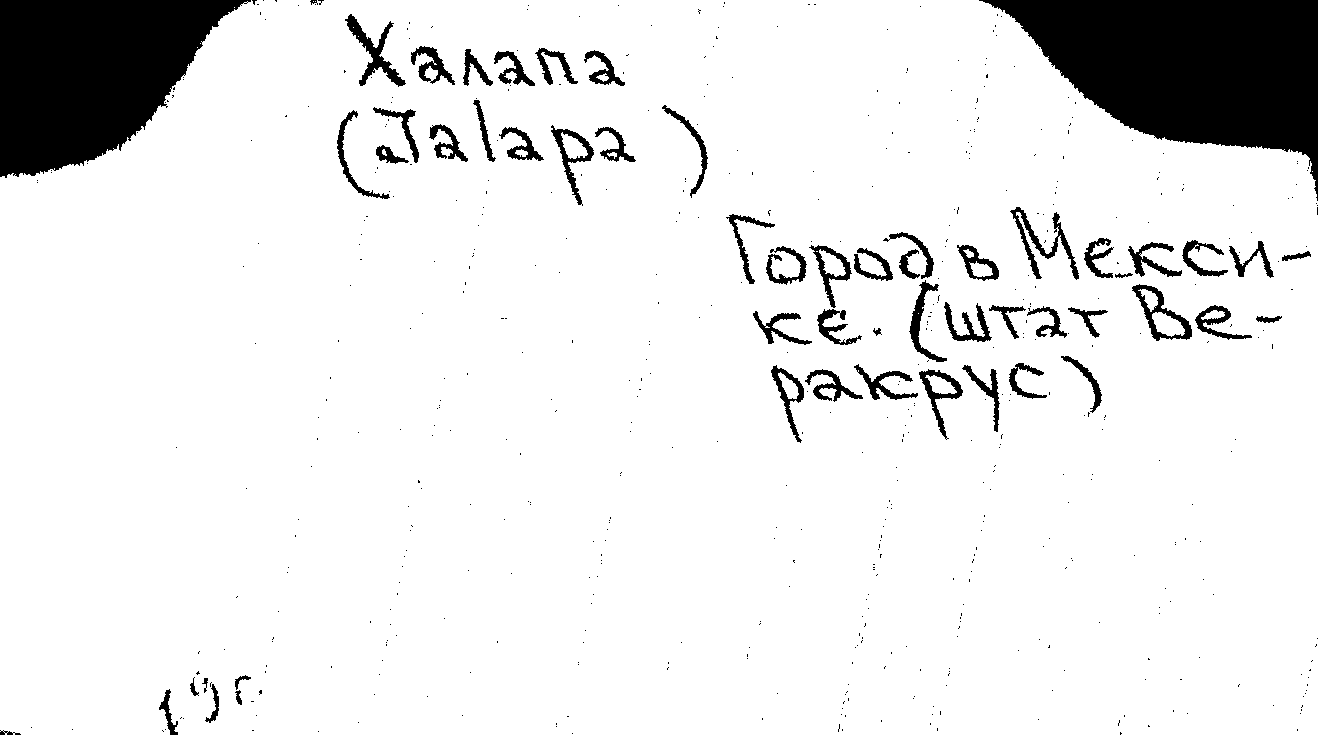 Халапа
(Jalapa)
Город в Мекси-
ке. (штат Ве-
ракрус)
19 г.